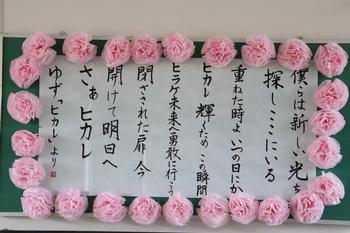 僕らは新しい光を
探しここにいる
重ねた時よ いつの日にか
ヒカレ 輝くため この瞬間
ヒラケ未来へ勇敢に行こう
閉ざされた扉 今
開けて明日へ
さぁ ヒカレ
ゆず「ヒカレ」より